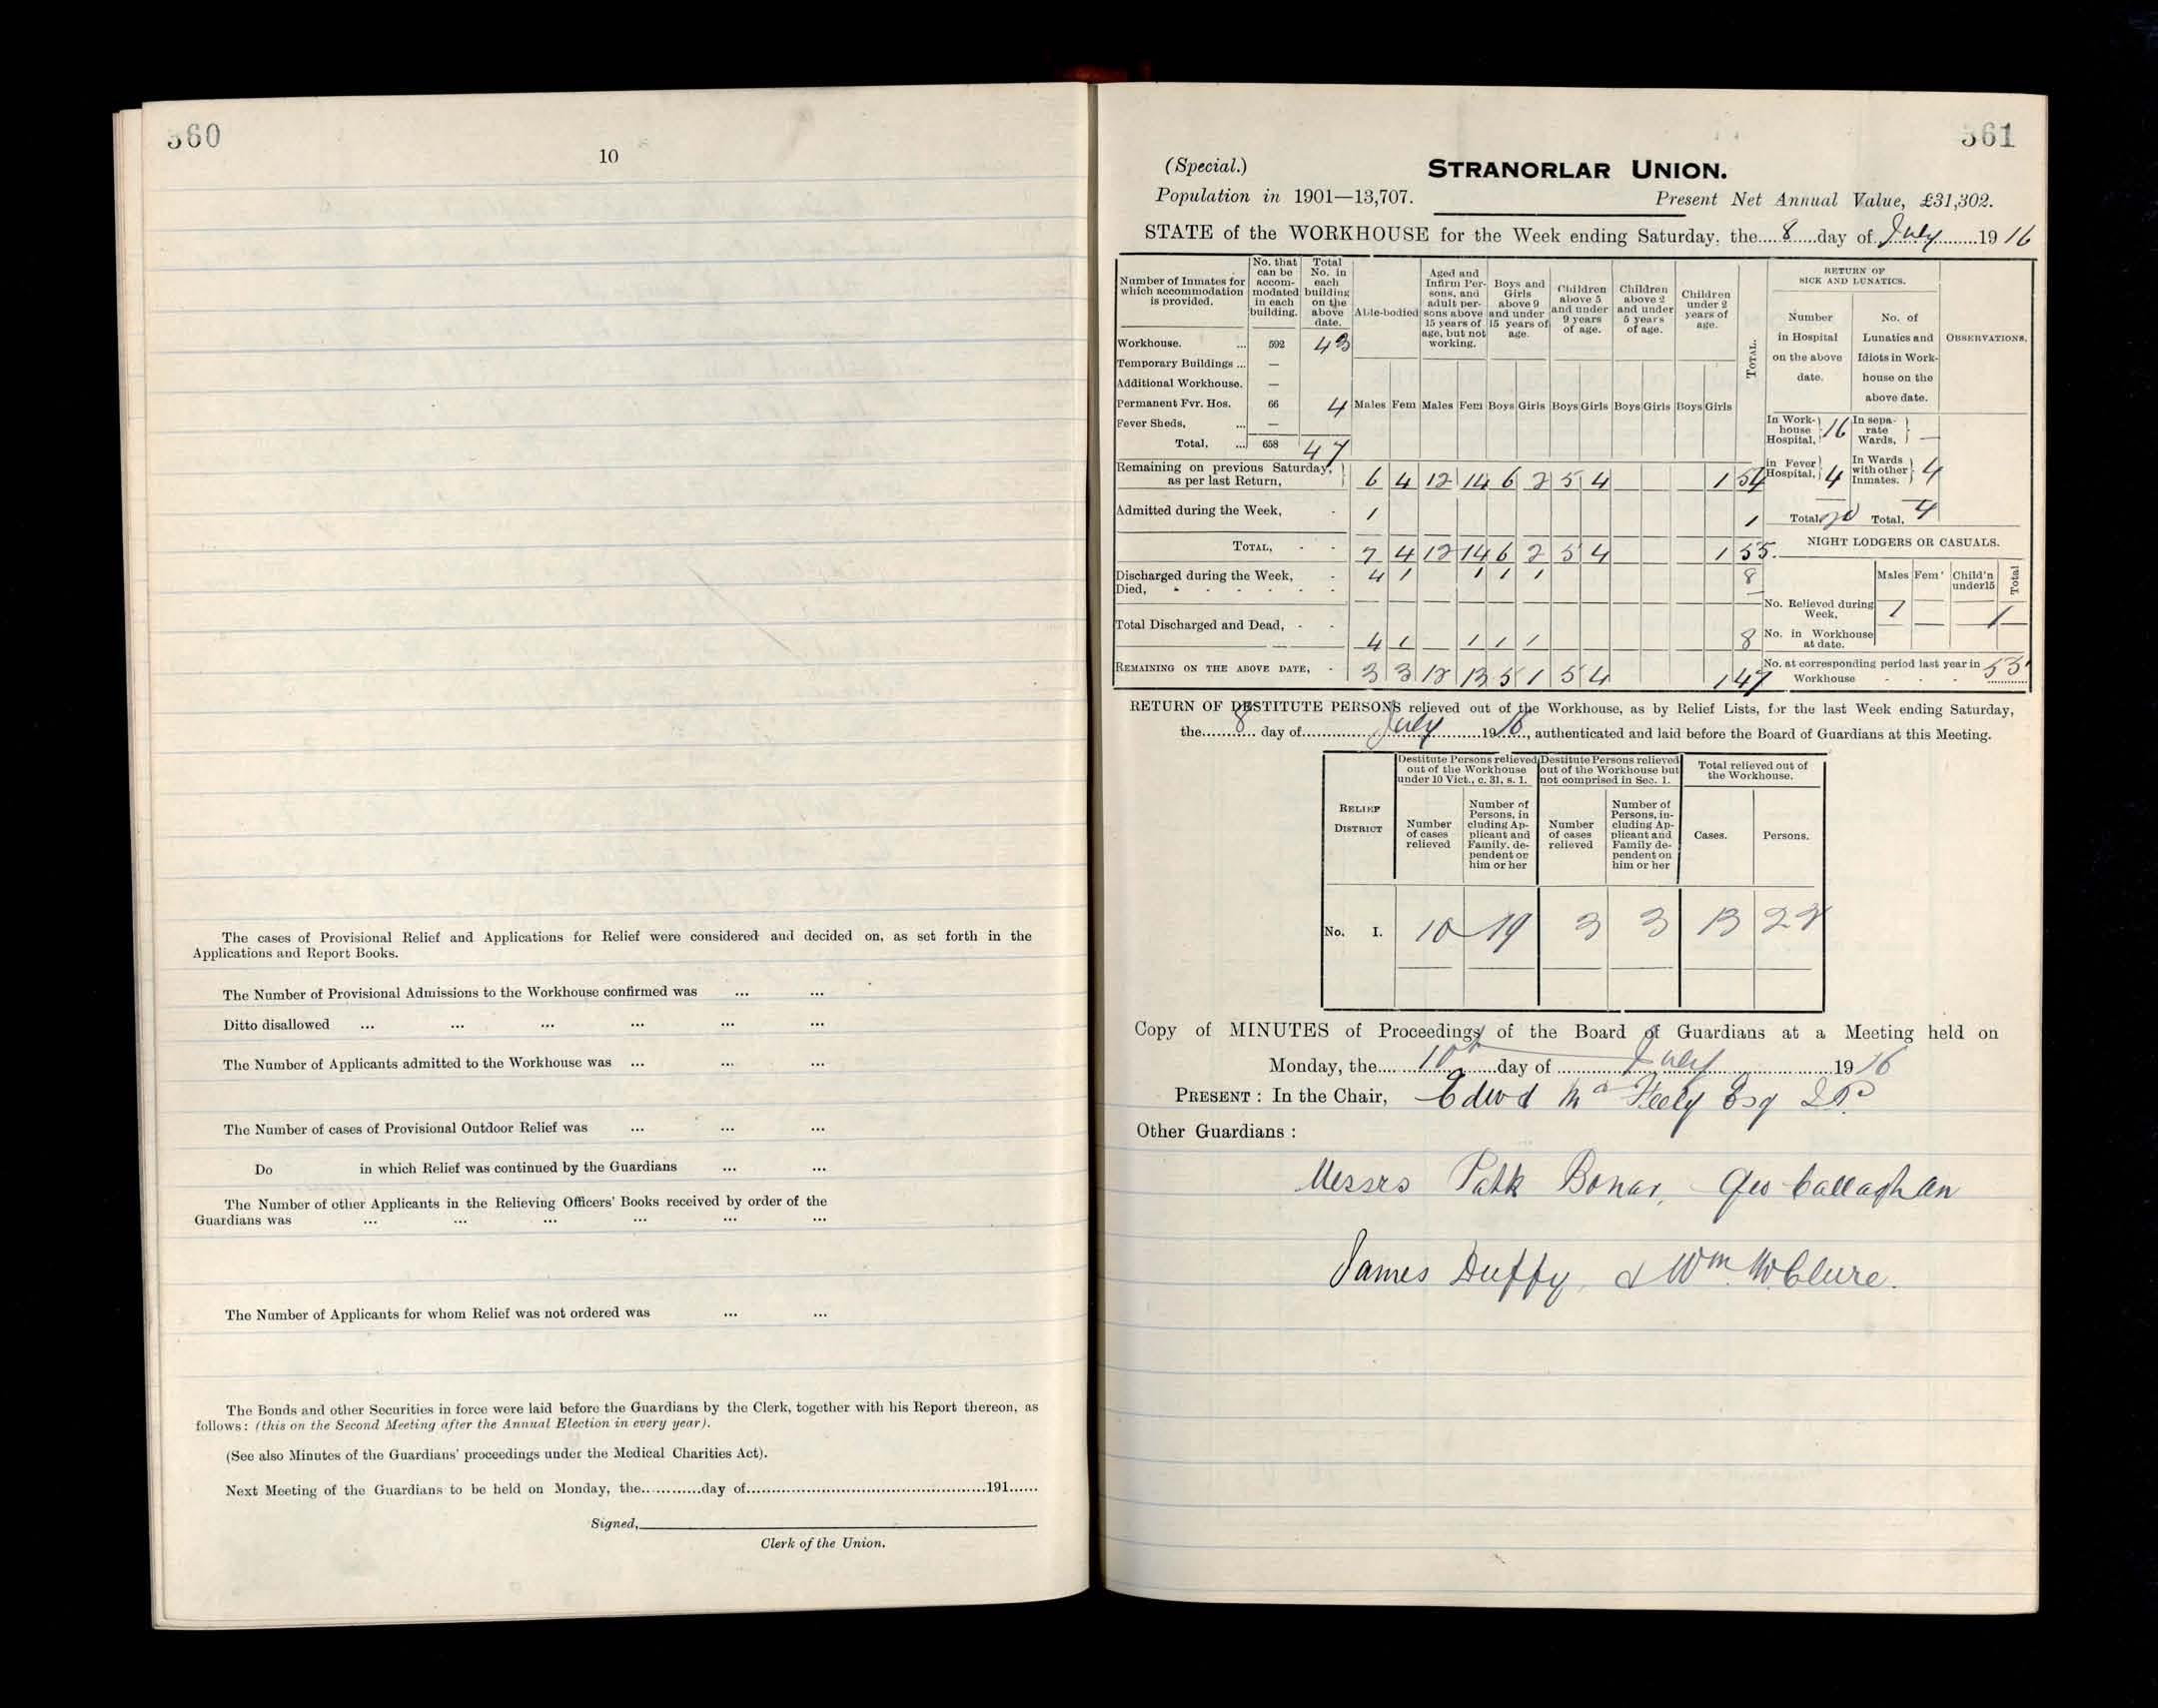 360
10
The cases of Provisional Relief and Applications for Relief were considered and decided on, as set forth in the
Applications and Report Books.
The Number of Provisional Admissions to the Workhouse confirmed was ... ...
Ditto disallowed ... ... ... ... ... ...
The Number of Applicants admitted to the Workhouse was ... ... ...
The Number of cases of Provisional Outdoor Relief was ... ... ...
Do in which Relief was continued by the Guardians ... ...
The Number of other Applicants in the Relieving Officers' Books received by order of the
Guardians was ... ... ... ... ... ...
The Number of Applicants for whom Relief was not ordered was ... ...
The Bonds and other Securities in force were laid before the Guardians by the Clerk, together with his Report thereon, as
follows: (this on the Second Meeting after the Annual Election in every year).
(See also Minutes of the Guardians' proceedings under the Medical Charities Act).
Next Meeting of the Guardians to be held on Monday, the............day of................................................191......
Signed,
Clerk of the Union.
361
(Special.) STRANORLAR UNION.
Population in 1901—13,707. Present Net Annual Value, £31,302.
STATE of the WORKHOUSE for the Week ending Saturday, the....8.....day of..July.........1916
Number of Inmates for
which accommodation
is provided.
No. that
can be
accom-
modated
in each
building.
Total
No. in
each
building
on the
above
date.
Able-bodied
Aged and
Infirm Per-
sons, and
adult per-
sons above
15 years of
age, but not
working.
Boys and
Girls
above 9
and under
15 years of
age.
Children
above 5
and under
9 years
of age.
Children
above 2
and under
5 years
of age.
Children
under 2
years of
age.
TOTAL.
RETURN OF
SICK AND LUNATICS.
Number
in Hospital
on the above
date.
No. of
Lunatics and
Idiots in Work-
house on the
above date.
OBSERVATIONS.
Workhouse. ... 592 43
Temporary Buildings ... —
Additional Workhouse. —
Permanent Fvr. Hos. 66 4
Fever Sheds, ... —
Total, ... 658 47
Males Fem Males Fem Boys Girls Boys Girls Boys Girls Boys Girls
In Work-
house
Hospital, 16
In sepa-
rate
Wards, —
In Fever
Hospital, 4
In Wards
with other
Inmates. 4
Total 20 Total, 4
Remaining on previous Saturday,
as per last Return, 6 4 12 14 6 2 5 4 1 54
Admitted during the Week, - 1 1
TOTAL, - - 7 4 12 14 6 2 5 4 1 55.
Discharged during the Week, - 4 1 1 1 1 8
Died, - - - - - -
Total Discharged and Dead, - - 4 1 — 1 1 1 8
REMAINING ON THE ABOVE DATE, - 3 3 12 13 5 1 5 4 1 47
NIGHT LODGERS OR CASUALS.
Males Fem' Child'n
under15 Total
No. Relieved during
Week, 1 — 1
No. in Workhouse
at date.
No. at corresponding period last year in
Workhouse - - - 53
RETURN OF DESTITUTE PERSONS relieved out of the Workhouse, as by Relief Lists, for the last Week ending Saturday,
the.....8..... day of..............July...........1916, authenticated and laid before the Board of Guardians at this Meeting.
RELIEF
DISTRICT
Destitute Persons relieved
out of the Workhouse
under 10 Vict., c. 31, s. 1.
Destitute Persons relieved
out of the Workhouse but
not comprised in Sec. 1.
Total relieved out of
the Workhouse.
Number
of cases
relieved
Number of
Persons, in
cluding Ap-
plicant and
Family, de-
pendent on
him or her
Number
of cases
relieved
Number of
Persons, in-
cluding Ap-
plicant and
Family de-
pendent on
him or her
Cases.
Persons.
No. I. 10 19 3 3 13 22
Copy of MINUTES of Proceedings of the Board of Guardians at a Meeting held on
Monday, the.......10th.......day of ............July......................1916
PRESENT : In the Chair, Edwd Mc Feely Esq J.P.
Other Guardians :
Messrs Patk Bonar, Geo Callaghan
James Duffy, & Wm McClure.